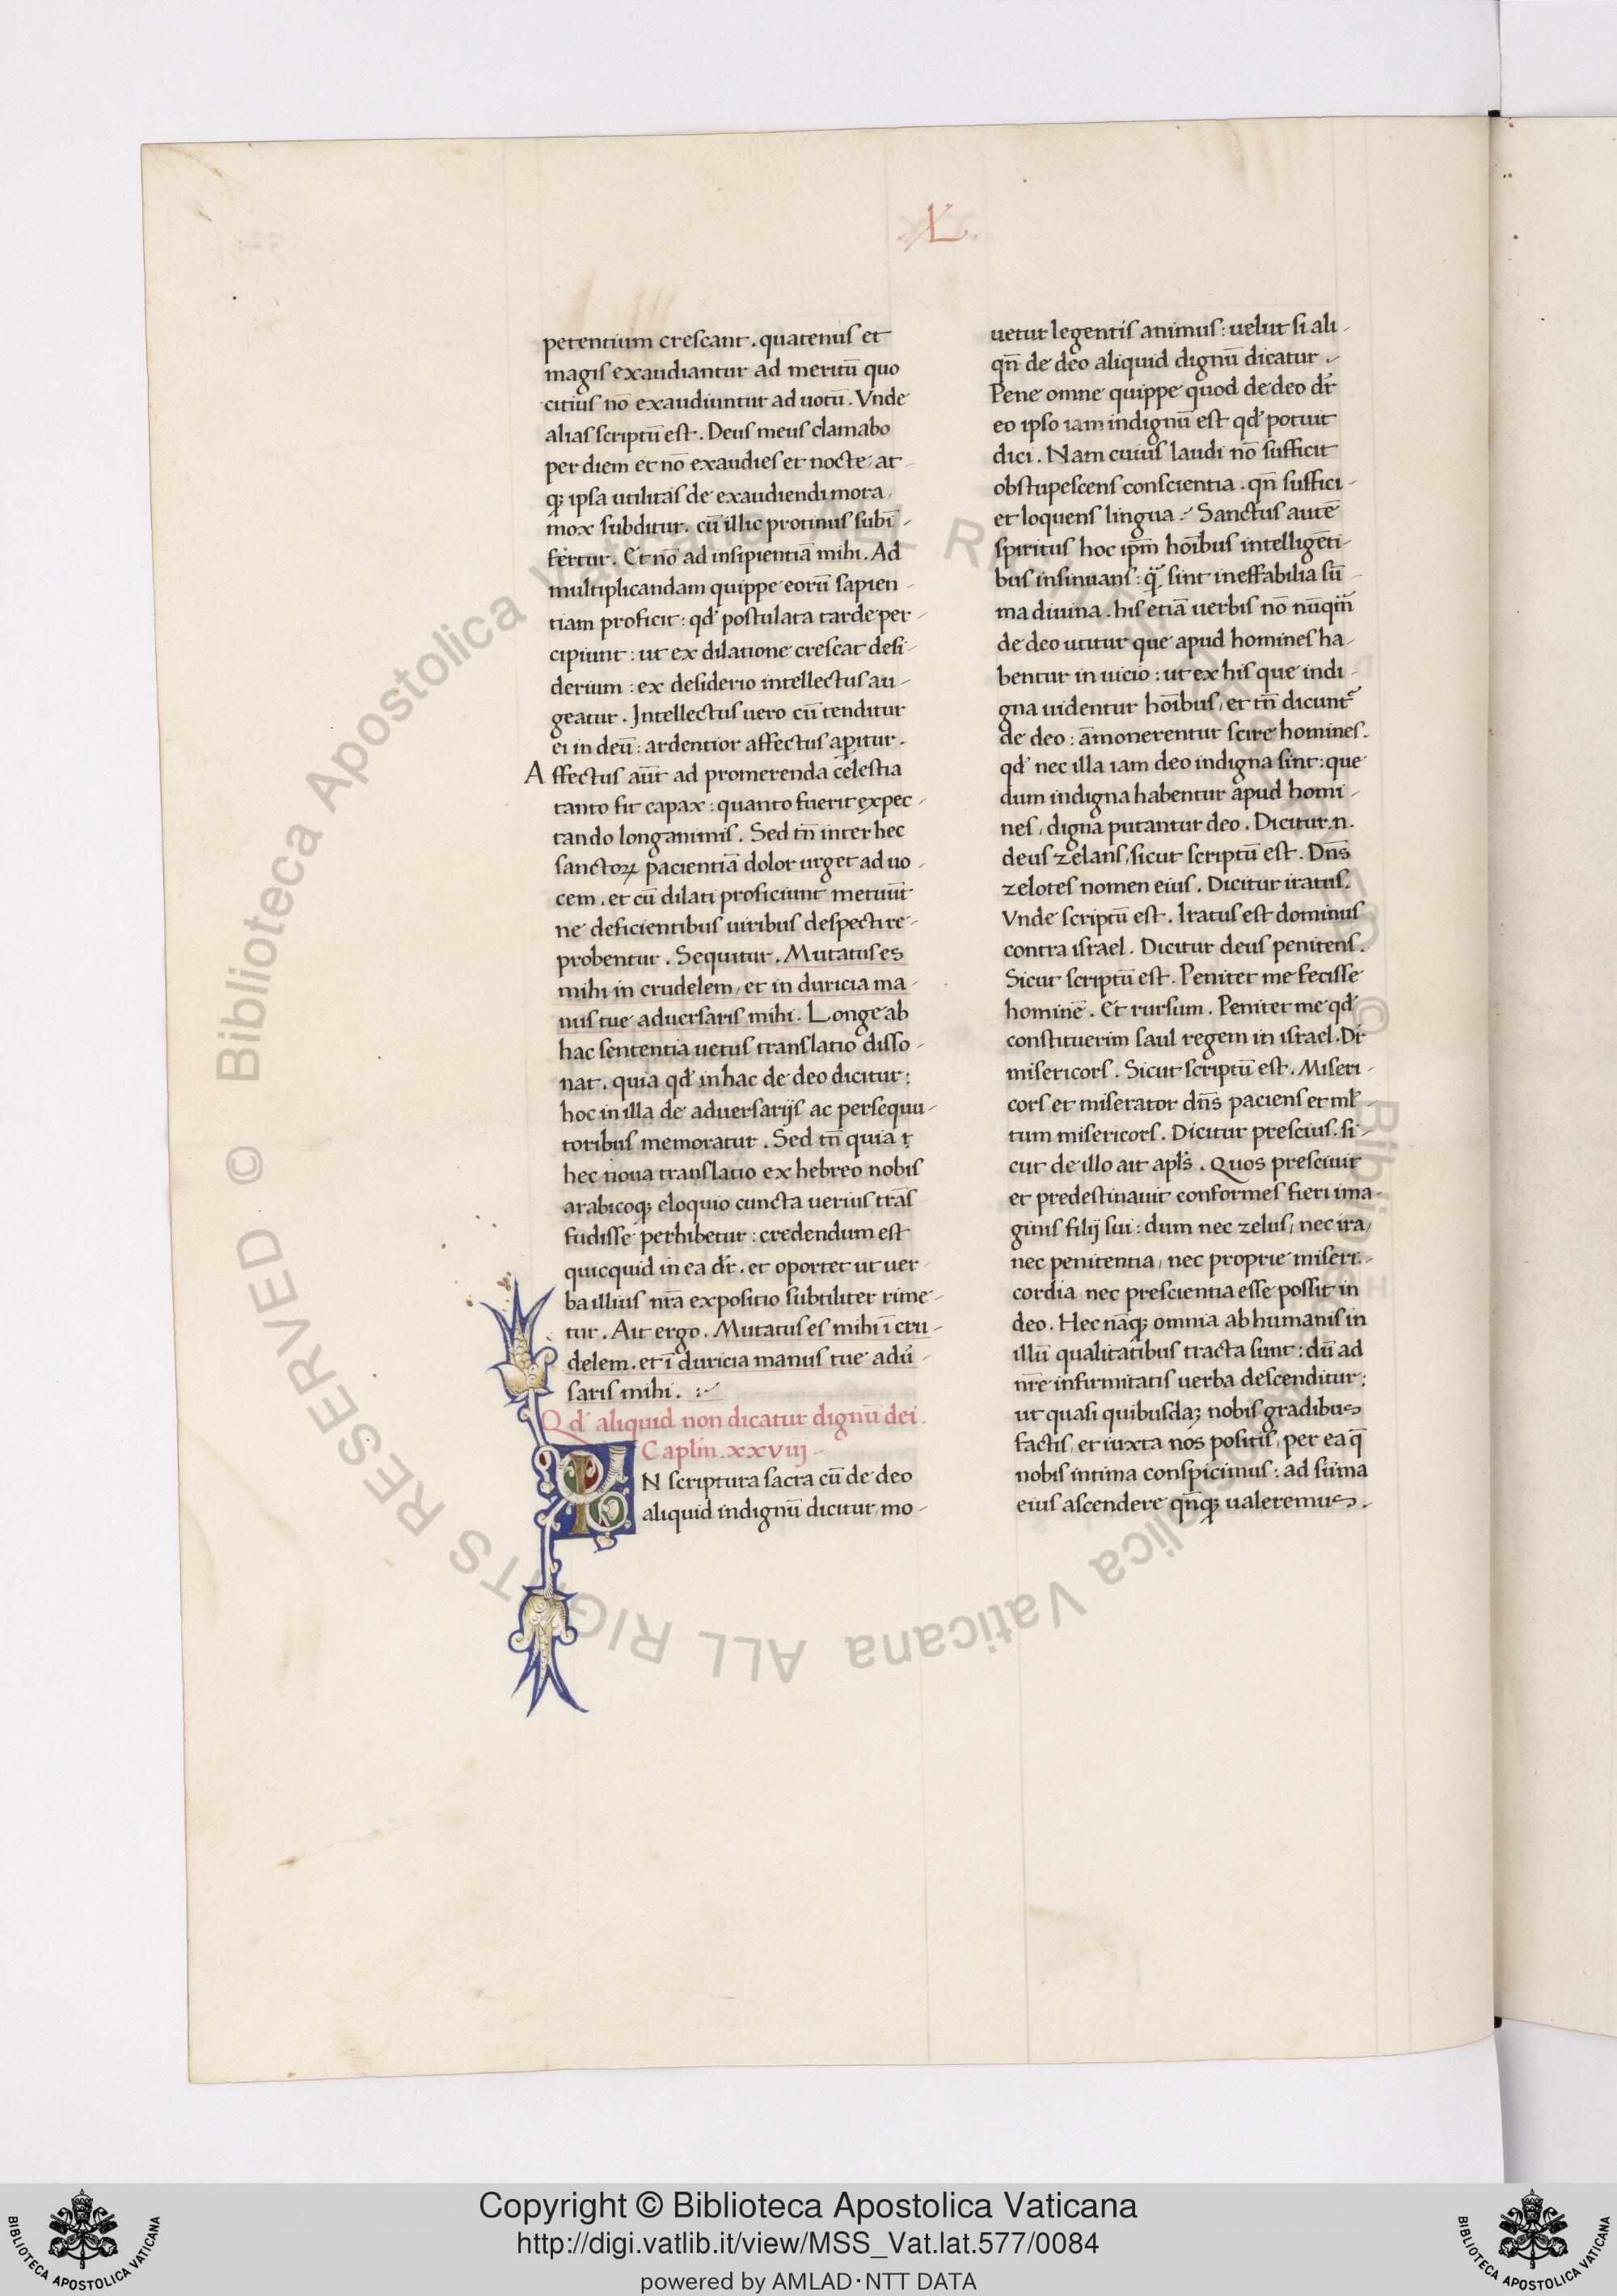 .XL.
petentium crescant. quatenus et
magis exaudiantur ad meritū quo
citius nō exaudiuntur ad uotū. Vnde
alias scriptū est. Deus meus clamabo
per diem et nō exaudies et nocte, at-
qȝ ipsa utilitas de exaudiendi mora,
mox subditur. cū illic protinus subī-
fertur. Et nō ad insipientiā mihi. Ad
multiplicandam quippe eorū sapien-
tiam proficit: qd' postulata tarde per-
cipiunt: ut ex dilatione crescat desi-
derium: ex desiderio intellectus au-
geatur. Intellectus uero cū tenditur
ei in deū: ardentior affectus apitur.
Affectus aūt ad promerenda celestia
tanto fit capax: quanto fuerit expec-
tando longanimis. Sed tn̄ inter hec
sanctoꝝ pacientiā dolor urget ad uo-
cem. et cū dilati proficiunt metuūt
ne deficientibus uiribus despecti re-
probentur. Sequitur. Mutatus es
mihi in crudelem, et in duricia ma-
nus tue aduersaris mihi. Longe ab
hac sententia uetus translatio disso-
nat. quia qd' in hac de deo dicitur:
hoc in illa de aduersarijs ac persequu-
toribus memoratur. Sed tn̄ quia
hec noua translatio ex hebreo nobis
arabicoqȝ eloquio cuncta uerius trās
fudisse perhibetur: credendum est
quicquid in ea dr̄. et oportet ut uer-
ba illius nr̄a expositio subtiliter rime-
tur. Ait ergo. Mutatus es mihi ī cru-
delem. et ī duricia manus tue adū-
saris mihi.
Qd' aliquid non dicatur dignū dei.
Capl'm. xxviij.
IN scriptura sacra cū de deo
aliquid indignū dicitur, mo-
uetur legentis animus: uelut si ali-
qn̄ de deo aliquid dignū dicatur.
Pene omne quippe quod de deo dr̄
eo ipso iam indignū est qd' potuit
dici. Nam cuius laudi nō sufficit
obstupescens conscientia. qn̄ suffici-
et loquens lingua. Sanctus autē
spiritus hoc ip̄m hoībus intelligēti-
bus insinuans: q̄ sint ineffabilia sū-
ma diuina. his etiā uerbis nō nūqm̄
de deo utitur que apud homines ha-
bentur in uicio: ut ex his que indi-
gna uidentur hoībus, et tn̄ dicunt'
de deo: āmonerentur scire homines.
qd' nec illa iam deo indigna sint: que
dum indigna habentur apud homi-
nes, digna putantur deo. Dicitur .n.
deus zelans, sicut scriptū est. Dn̄s
zelotes nomen eius. Dicitur iratus.
Vnde scriptū est. Iratus est dominus
contra israel. Dicitur deus penitens.
Sicut scriptū est. Penitet me fecisse
hominē. Et rursum. Penitet me qd'
constituerim saul regem in israel. Dr̄
misericors. Sicut scriptū est. Miseri-
cors et miserator dn̄s paciens et ml'-
tum misericors. Dicitur prescius. si-
cut de illo ait apl's. Quos presciuit
et predestinauit conformes fieri ima-
ginis filij sui: dum nec zelus, nec ira,
nec penitentia, nec proprie miseri-
cordia nec prescientia esse possit in
deo. Hec nāqȝ omnia ab humanis in
illū qualitatibus tracta sunt: dū ad
nr̄e infirmitatis uerba descenditur:
ut quasi quibusdaȝ nobis gradibus
factis, et iuxta nos positis, per ea q̄
nobis intima conspicimus: ad summa
eius ascendere qn̄qȝ ualeremus.
Copyright © Biblioteca Apostolica Vaticana
http://digi.vatlib.it/view/MSS_Vat.lat.577/0084
powered by AMLAD·NTT DATA
BIBLIOTECA APOSTOLICA VATICANA
BIBLIOTECA APOSTOLICA VATICANA
© Biblioteca Apostolica Vaticana ALL RIGHTS RESERVED © Biblioteca Apostolica Vaticana ALL RIGHTS RESERVED